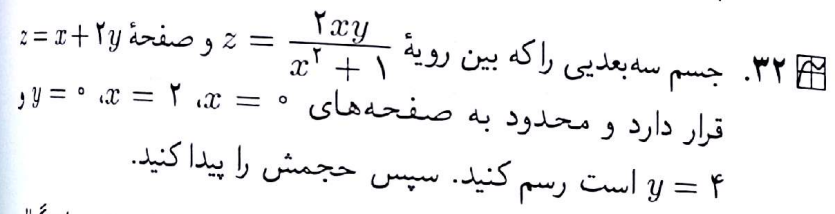 ۳۲. جسم سه‌بعدیی را که بین رویهٔ z = ۲xy / (x^۲ + ۱) و صفحهٔ z = x + ۲y
قرار دارد و محدود به صفحه‌های x = ۰، x = ۲، y = ۰ و
y = ۴ است رسم کنید. سپس حجمش را پیدا کنید.